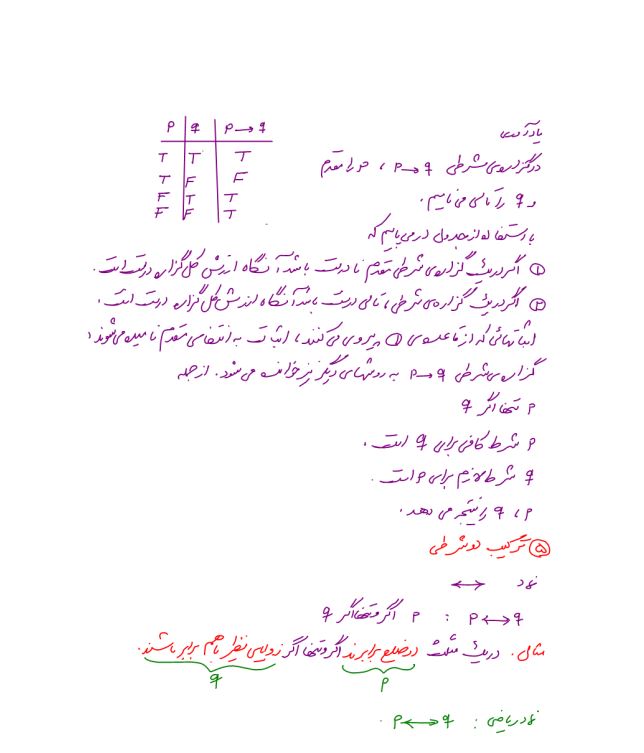 یادآوری
در گزاره‌ی شرطی p → q ، p را مقدم
و q را تالی می نامیم.
p q p → q
T T T
T F F
F T T
F F T
با استفاده از جدول در می یابیم که
① اگر در یک گزاره‌ی شرطی مقدم نادرست باشد آنگاه ارزش کل گزاره درست است.
② اگر در یک گزاره‌ی شرطی، تالی درست باشد آنگاه ارزش کل گزاره درست است.
اثباتهائی که از قاعده‌ی ① پیروی می کنند، اثبات به انتفای مقدم نامیده می شوند.
گزاره‌ی شرطی p → q به روشهای دیگر نیز خوانده می شود. از جمله
p تنها اگر q
p شرط کافی برای q است.
q شرط لازم برای p است.
p ، q را نتیجه می دهد.
⑤ ترکیب دو شرطی
نماد ↔
p ↔ q : p اگر و تنها اگر q
مثال. در یک مثلث دو ضلع برابرند اگر و تنها اگر زوایای نظیر با هم برابر باشند.
p q
نماد ریاضی : p ↔ q .